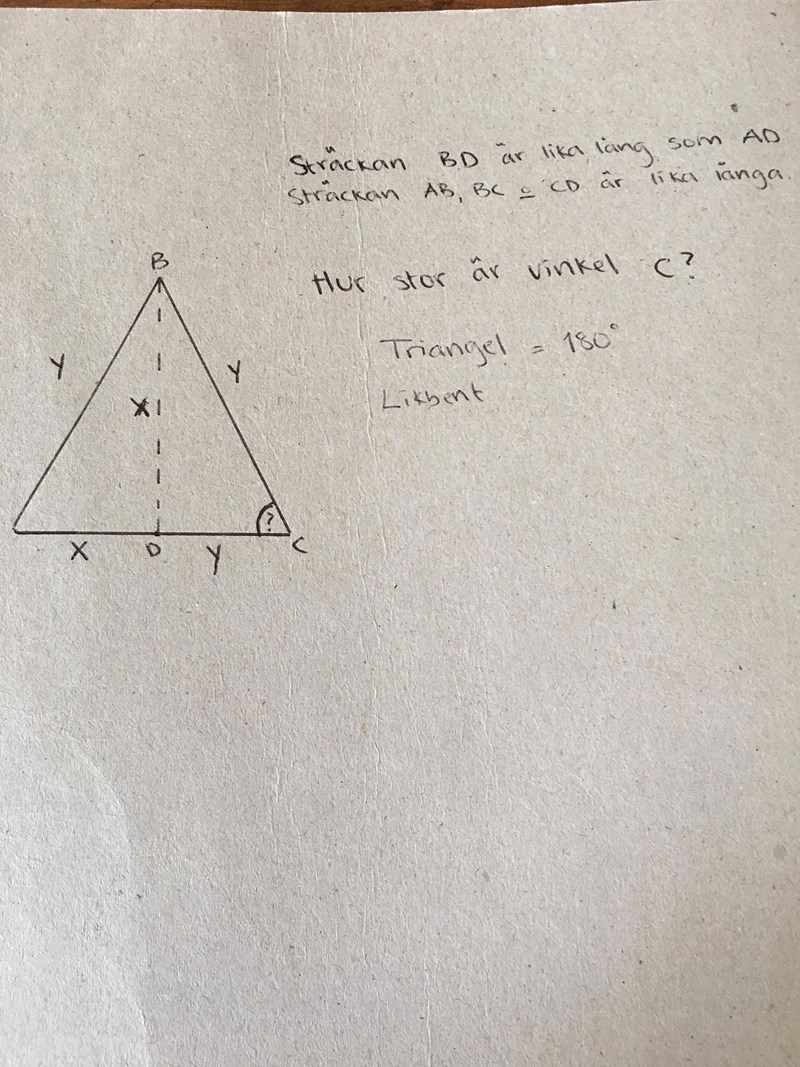 Sträckan BD är lika lång som AD
Sträckan AB, BC o CD är lika långa.
Hur stor är vinkel C?
Triangel = 180°
Likbent
B
Y
Y
X
?
X
D
Y
C